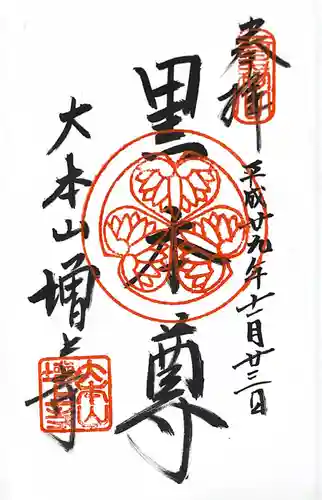 奉拝
平成廿九年十一月廿三日
黒本尊
大本山増上寺
大本山増上寺